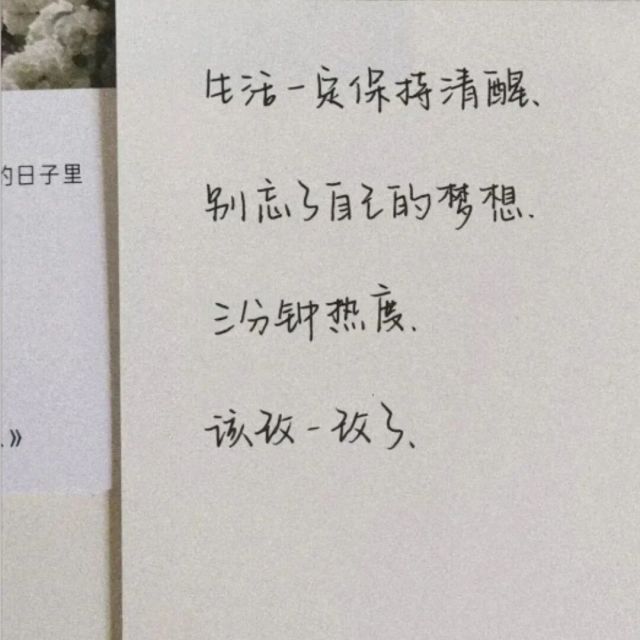 的日子里
》
生活一定保持清醒、
别忘了自己的梦想、
三分钟热度、
该改一改了、